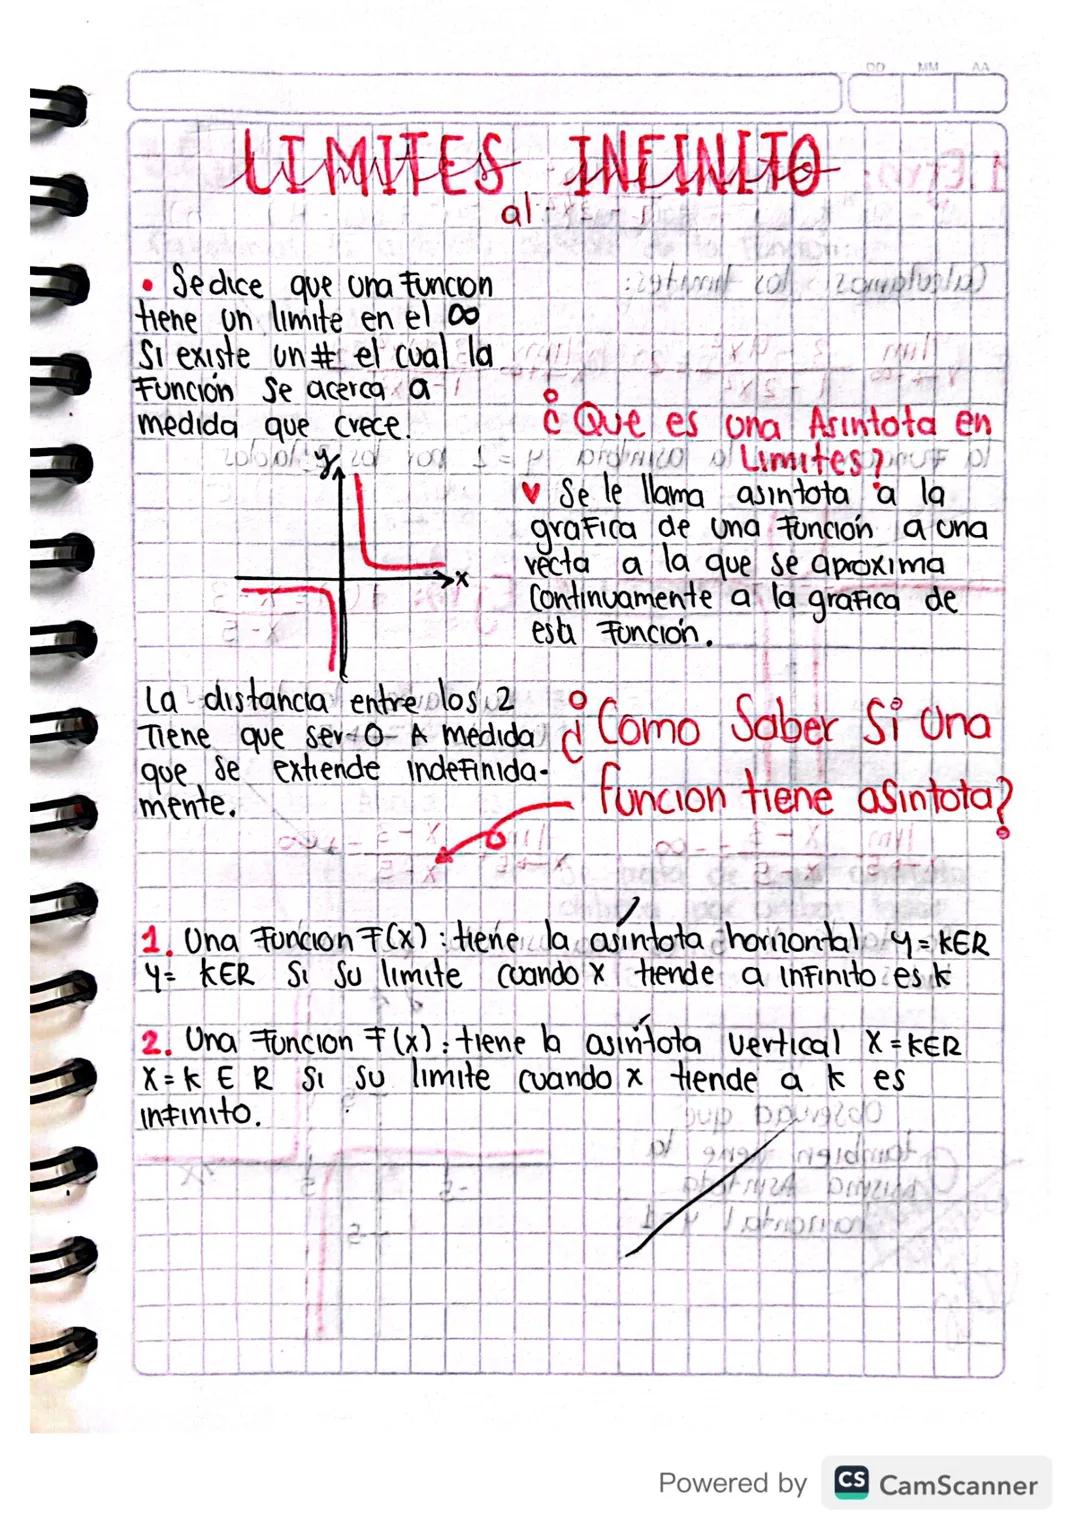 DD MM AA
LIMITES INFINITO
al
• Se dice que una Funcion
tiene un limite en el ∞
Si existe un # el cual la
Función se acerca a
medida que crece.
y
x
¿Que es una Asintota en
Limites?
♥ Se le llama asintota a la
grafica de una Función a una
recta a la que se aproxima
Continuamente a la grafica de
esta Función.
La distancia entre los 2
Tiene que ser 0 A medida
que se extiende indefinida-
mente.
¿Como Saber Si una
funcion tiene asintota?
1. Una Funcion F(x): tiene la asíntota horizontal y=kER
y= kER Si Su limite cuando x tiende a infinito es k
2. Una Funcion F(x): tiene la asíntota vertical X=kER
X=k E R Si su limite cuando x tiende a k es
infinito.
Powered by CS CamScanner